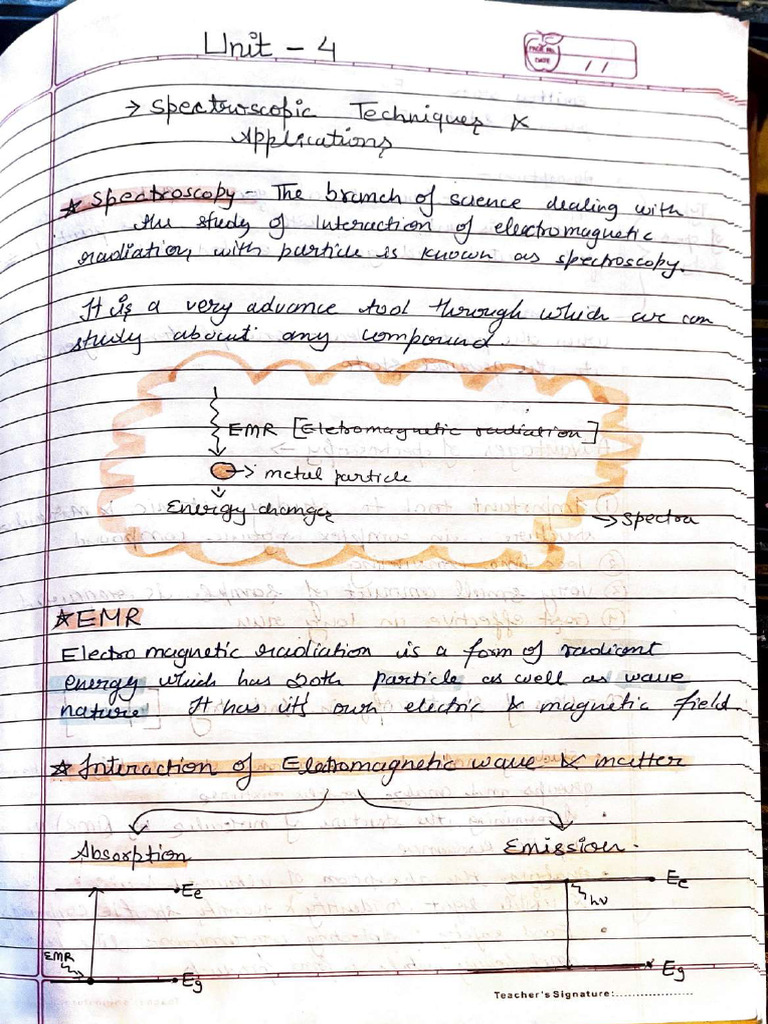 Unit - 4
PAGE NO.
DATE / /
→ Spectroscopic Techniques &
Applications
★ Spectroscopy - The branch of science dealing with
the study of Interaction of electromagnetic
radiation, with particle is known as spectroscopy.
It is a very advance tool through which we can
study about any compound.
EMR [Eletromagnetic radiation]
→ metal particle
Energy changes
→ Spectra
★ EMR
Electro magnetic radiation is a form of radient
energy which has both particle as well as wave
nature. It has it's own electric & magnetic field.
★ Interaction of Eletromagnetic wave & matter
Absorption
Emission.
Ee
Ee
hν
EMR
Eg
Eg
Teacher's Signature: